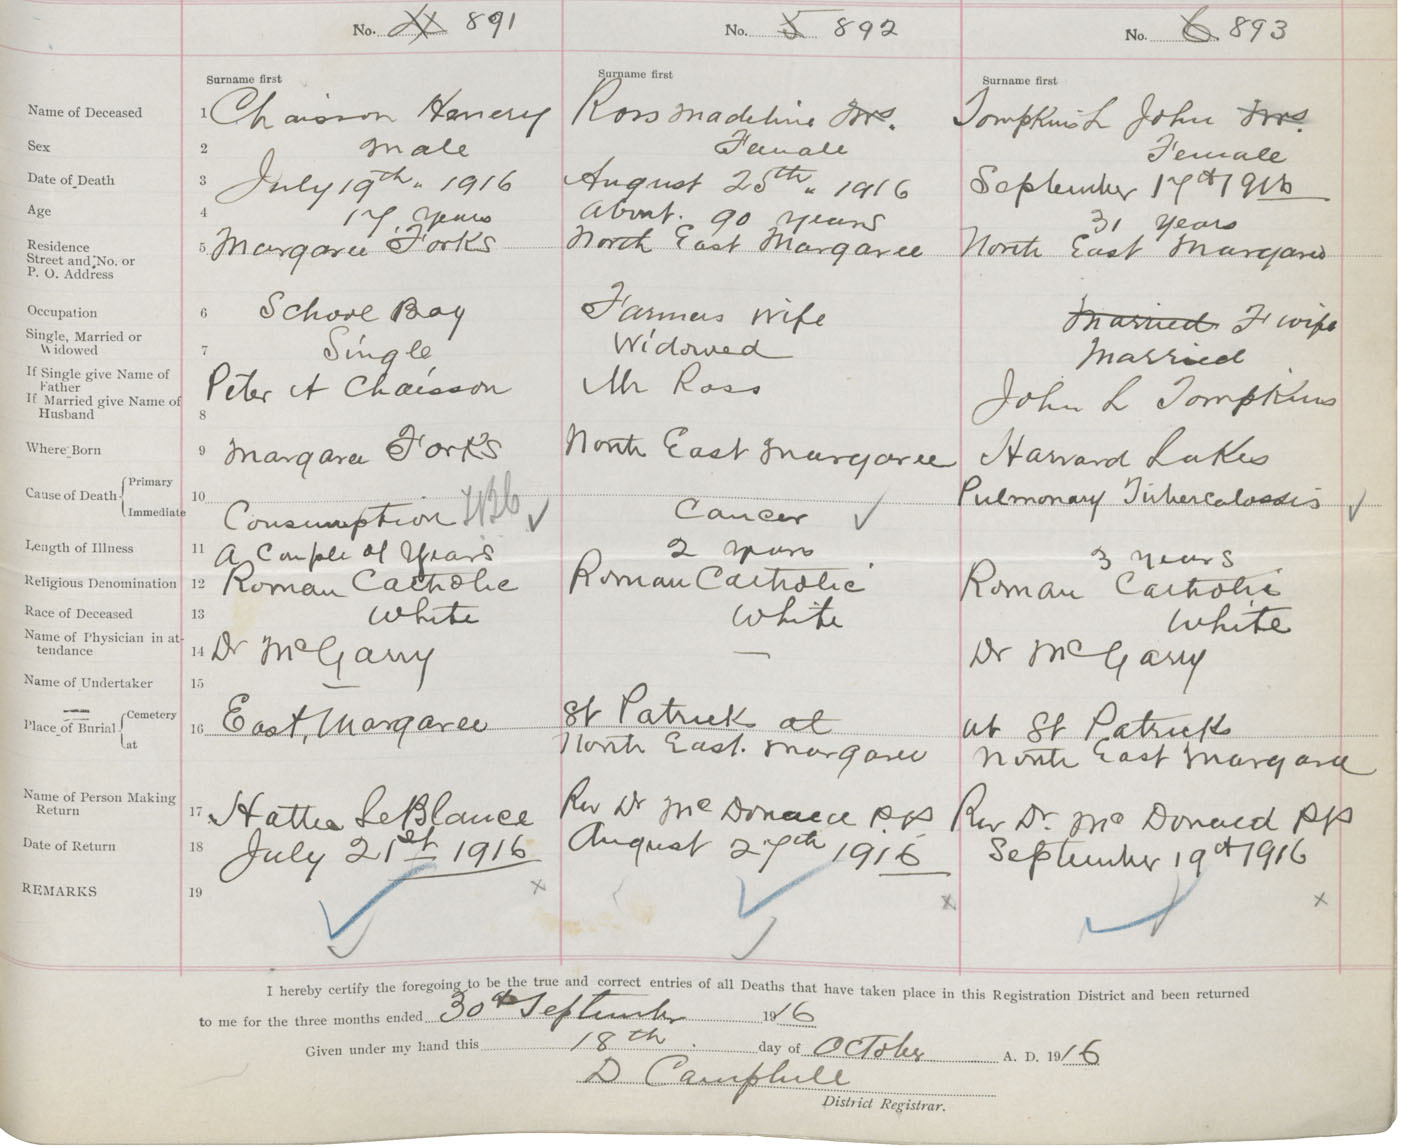 No. 891 No. 5 892 No. 6 893
Surname first Surname first Surname first
Name of Deceased 1 Chaisson Henery Ross Madeline Mrs. Tompkins L John Mrs.
Sex 2 Male Female Female
Date of Death 3 July 19th " 1916 August 25th " 1916 September 17th 1916
Age 4 17 Years About. 90 years 31 years
Residence Street and No. or P. O. Address 5 Margaree Forks North East Margaree North East Margaree
Occupation 6 School Boy Farmers Wife Married F wife
Single, Married or Widowed 7 Single Widowed Married
If Single give Name of Father
If Married give Name of Husband 8 Peter A Chaisson Mr Ross John L Tompkins
Where Born 9 Margaree Forks North East Margaree Harvard Lakes
Cause of Death { Primary Immediate 10 Consumption Cancer Pulmonary Tuberculossis
Length of Illness 11 A Couple of Years 2 years 3 years
Religious Denomination 12 Roman Catholic Roman Catholic Roman Catholic
Race of Deceased 13 White White White
Name of Physician in attendance 14 Dr McGarry — Dr McGarry
Name of Undertaker 15 —
Place of Burial { Cemetery at 16 East, Margaree St Patricks at North East. Margaree at St Patricks North East Margaree
Name of Person Making Return 17 Hattie LeBlance Rev Dr McDonald P.P Rev Dr. McDonald P.P
Date of Return 18 July 21st 1916 August 27th 1916 September 19th 1916
REMARKS 19 x x x
I hereby certify the foregoing to be the true and correct entries of all Deaths that have taken place in this Registration District and been returned
to me for the three months ended 30th September 1916
Given under my hand this 18th. day of October A. D. 1916
D Campbell
District Registrar.